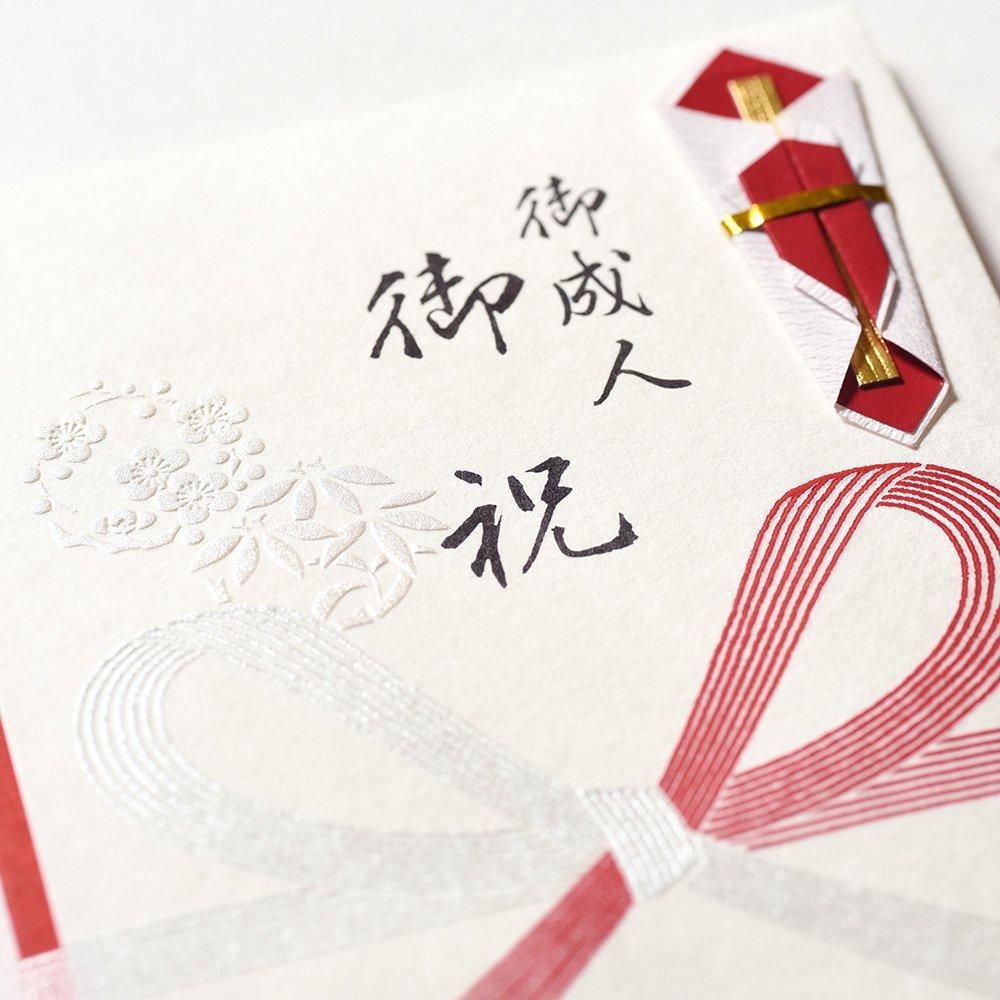 御成人
御祝